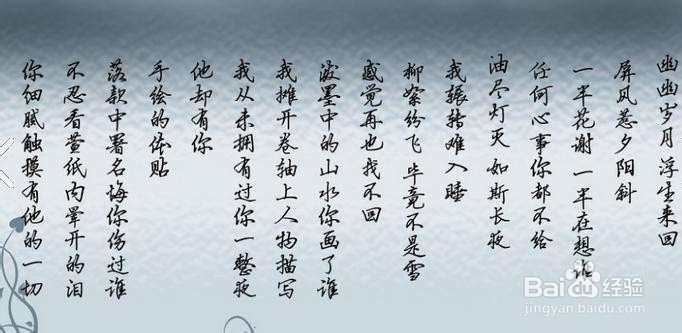 幽幽岁月 浮生来回
屏风惹夕阳斜
一半花谢 一半在想谁
任何心事你都不给
油尽灯灭 如斯长夜
我辗转难入睡
柳絮纷飞 毕竟不是雪
感觉再也找不回
泼墨中的山水你画了谁
我摊开卷轴上人物描写
我从未拥有过你一整夜
他却有你
手绘的体贴
落款中署名悔你伤过谁
不忍看萱纸内晕开的泪
你细腻触摸有他的一切
Baidu经验
jingyan.baidu.com